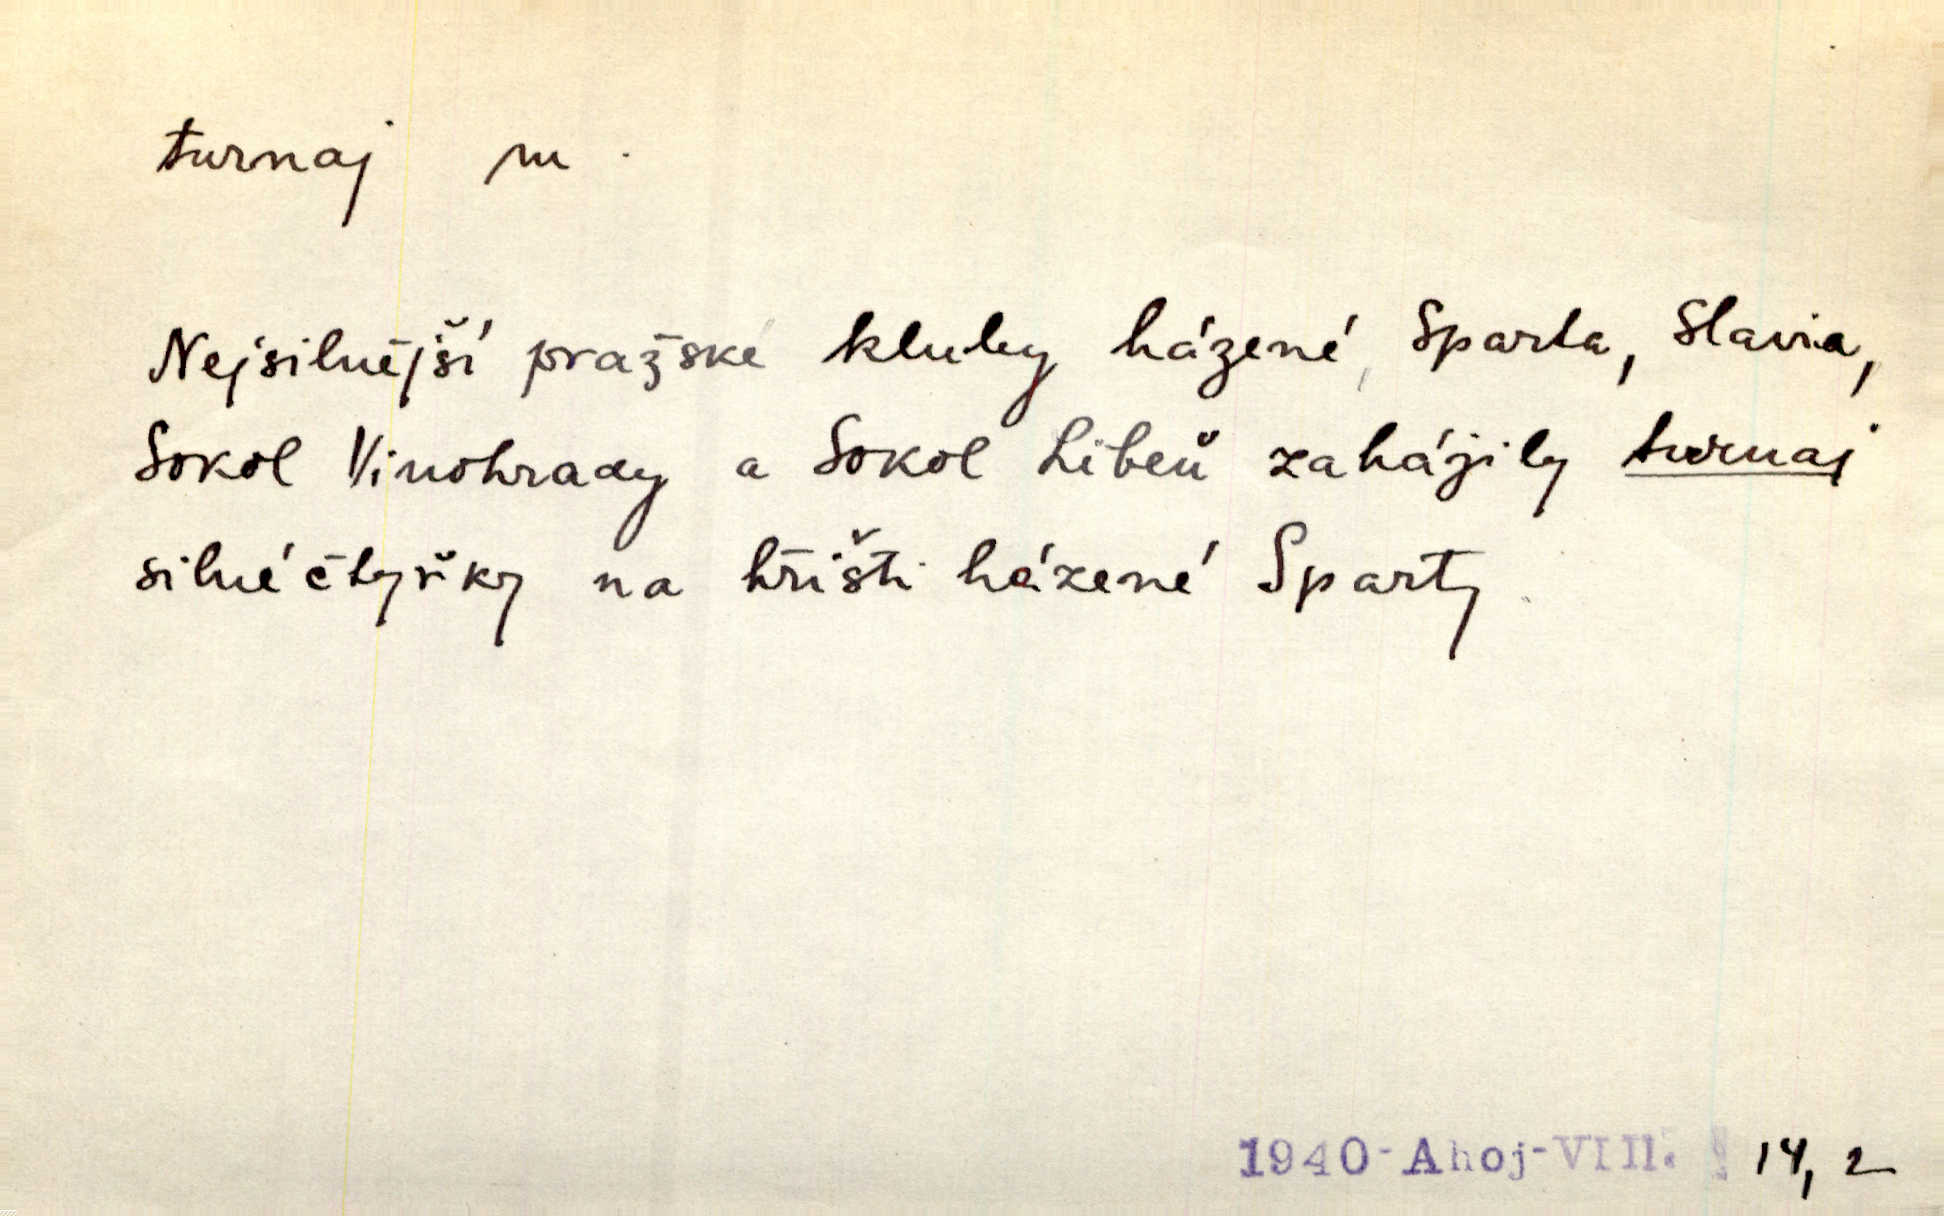 turnaj m.
Nejsilnější pražské kluby házené, Sparta, Slavia,
Sokol Vinohrady a Sokol Libeň zahájily turnaj
silné čtyřky na hřišti házené Sparty.
1940-Ahoj-VIII. 14, 2